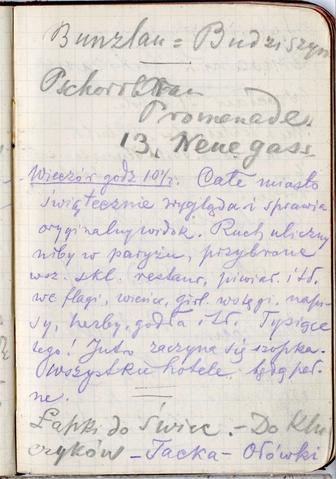 Bunzlau = Budziszyn
Pschorrbräu
Promenade
13. Neue gass
Wieczór godz 10½. Całe miasto
świątecznie wygląda i sprawia
oryginalny widok. Ruch uliczny
niby w paryżu, przybrane
wsz. skl. restaur, piwiar. i td.
we flagi, wieńce, girl. wstęgi. napi-
sy, herby, godła i td. Tysiące
tego! Jutro zaczyna się szopka.
Wszystkie hotele będą peł-
ne.
Łapki do świec. – Do Klu-
czyków – Tacka – Ołówki